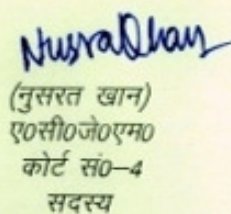 Nusrat Khan
(नुसरत खान)
ए०सी०जे०एम०
कोर्ट सं०–4
सदस्य